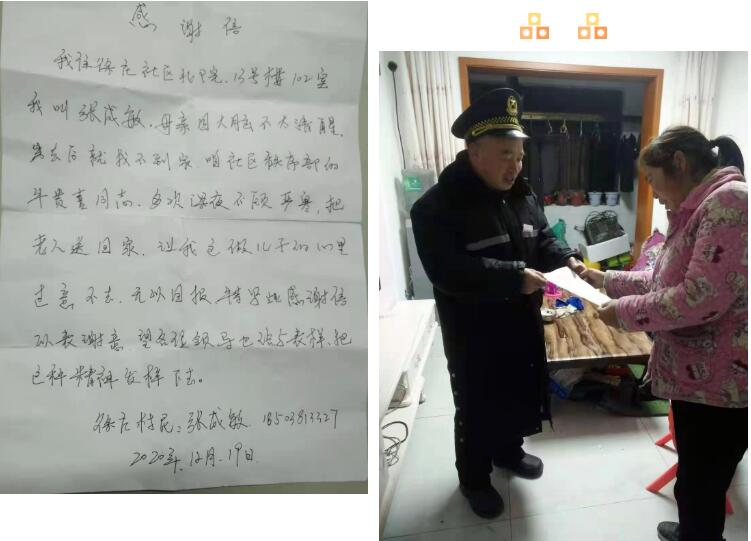 感谢信
我住徐庄社区北2院，13号楼102室
我叫张成敏，母亲因大脑不太清醒，
出去后就找不到家 咱社区秩序部的
牛贵喜同志，多次深夜不顾严寒，把
老人送回家，让我这做儿子的心里
过意不去，无以回报 特写此感谢信
以表谢意，望各级领导也给与表样，把
这种精神发样下去。
徐庄村民：张成敏 18503813327
2020年，12月，19日